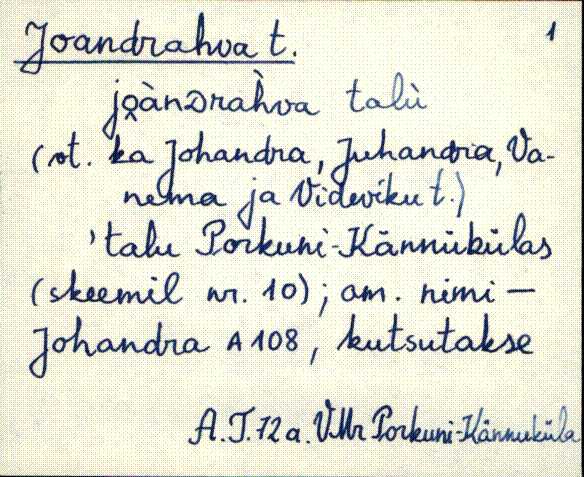 Joandrahva t.
1
jo̭ànDrah̀va talù
(vt. ka Johandra, Juhandra, Va-
nema ja Videviku t.)
'talu Porkuni-Kännükülas
(skeemil nr. 10); am. nimi –
Johandra A 108, kutsutakse
A.T. 72 a. VMr Porkuni-Kännuküla